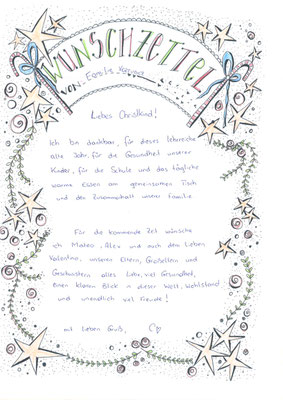 WUNSCHZETTEL
VON Familie
Liebes Christkind!
Ich bin dankbar, für dieses lehrreiche
alte Jahr, für die Gesundheit unserer
Kinder, für die Schule und das tägliche
warme Essen am gemeinsamen Tisch
und den Zusammenhalt unserer Familie.
Für die kommende Zeit wünsche
ich Mateo, Alex und auch dem Lieben
Valentino, unseren Eltern, Großeltern und
Geschwistern alles Liebe, viel Gesundheit,
einen klaren Blick in dieser Welt, Wohlstand
und unendlich viel Freude!
mit lieben Gruß,